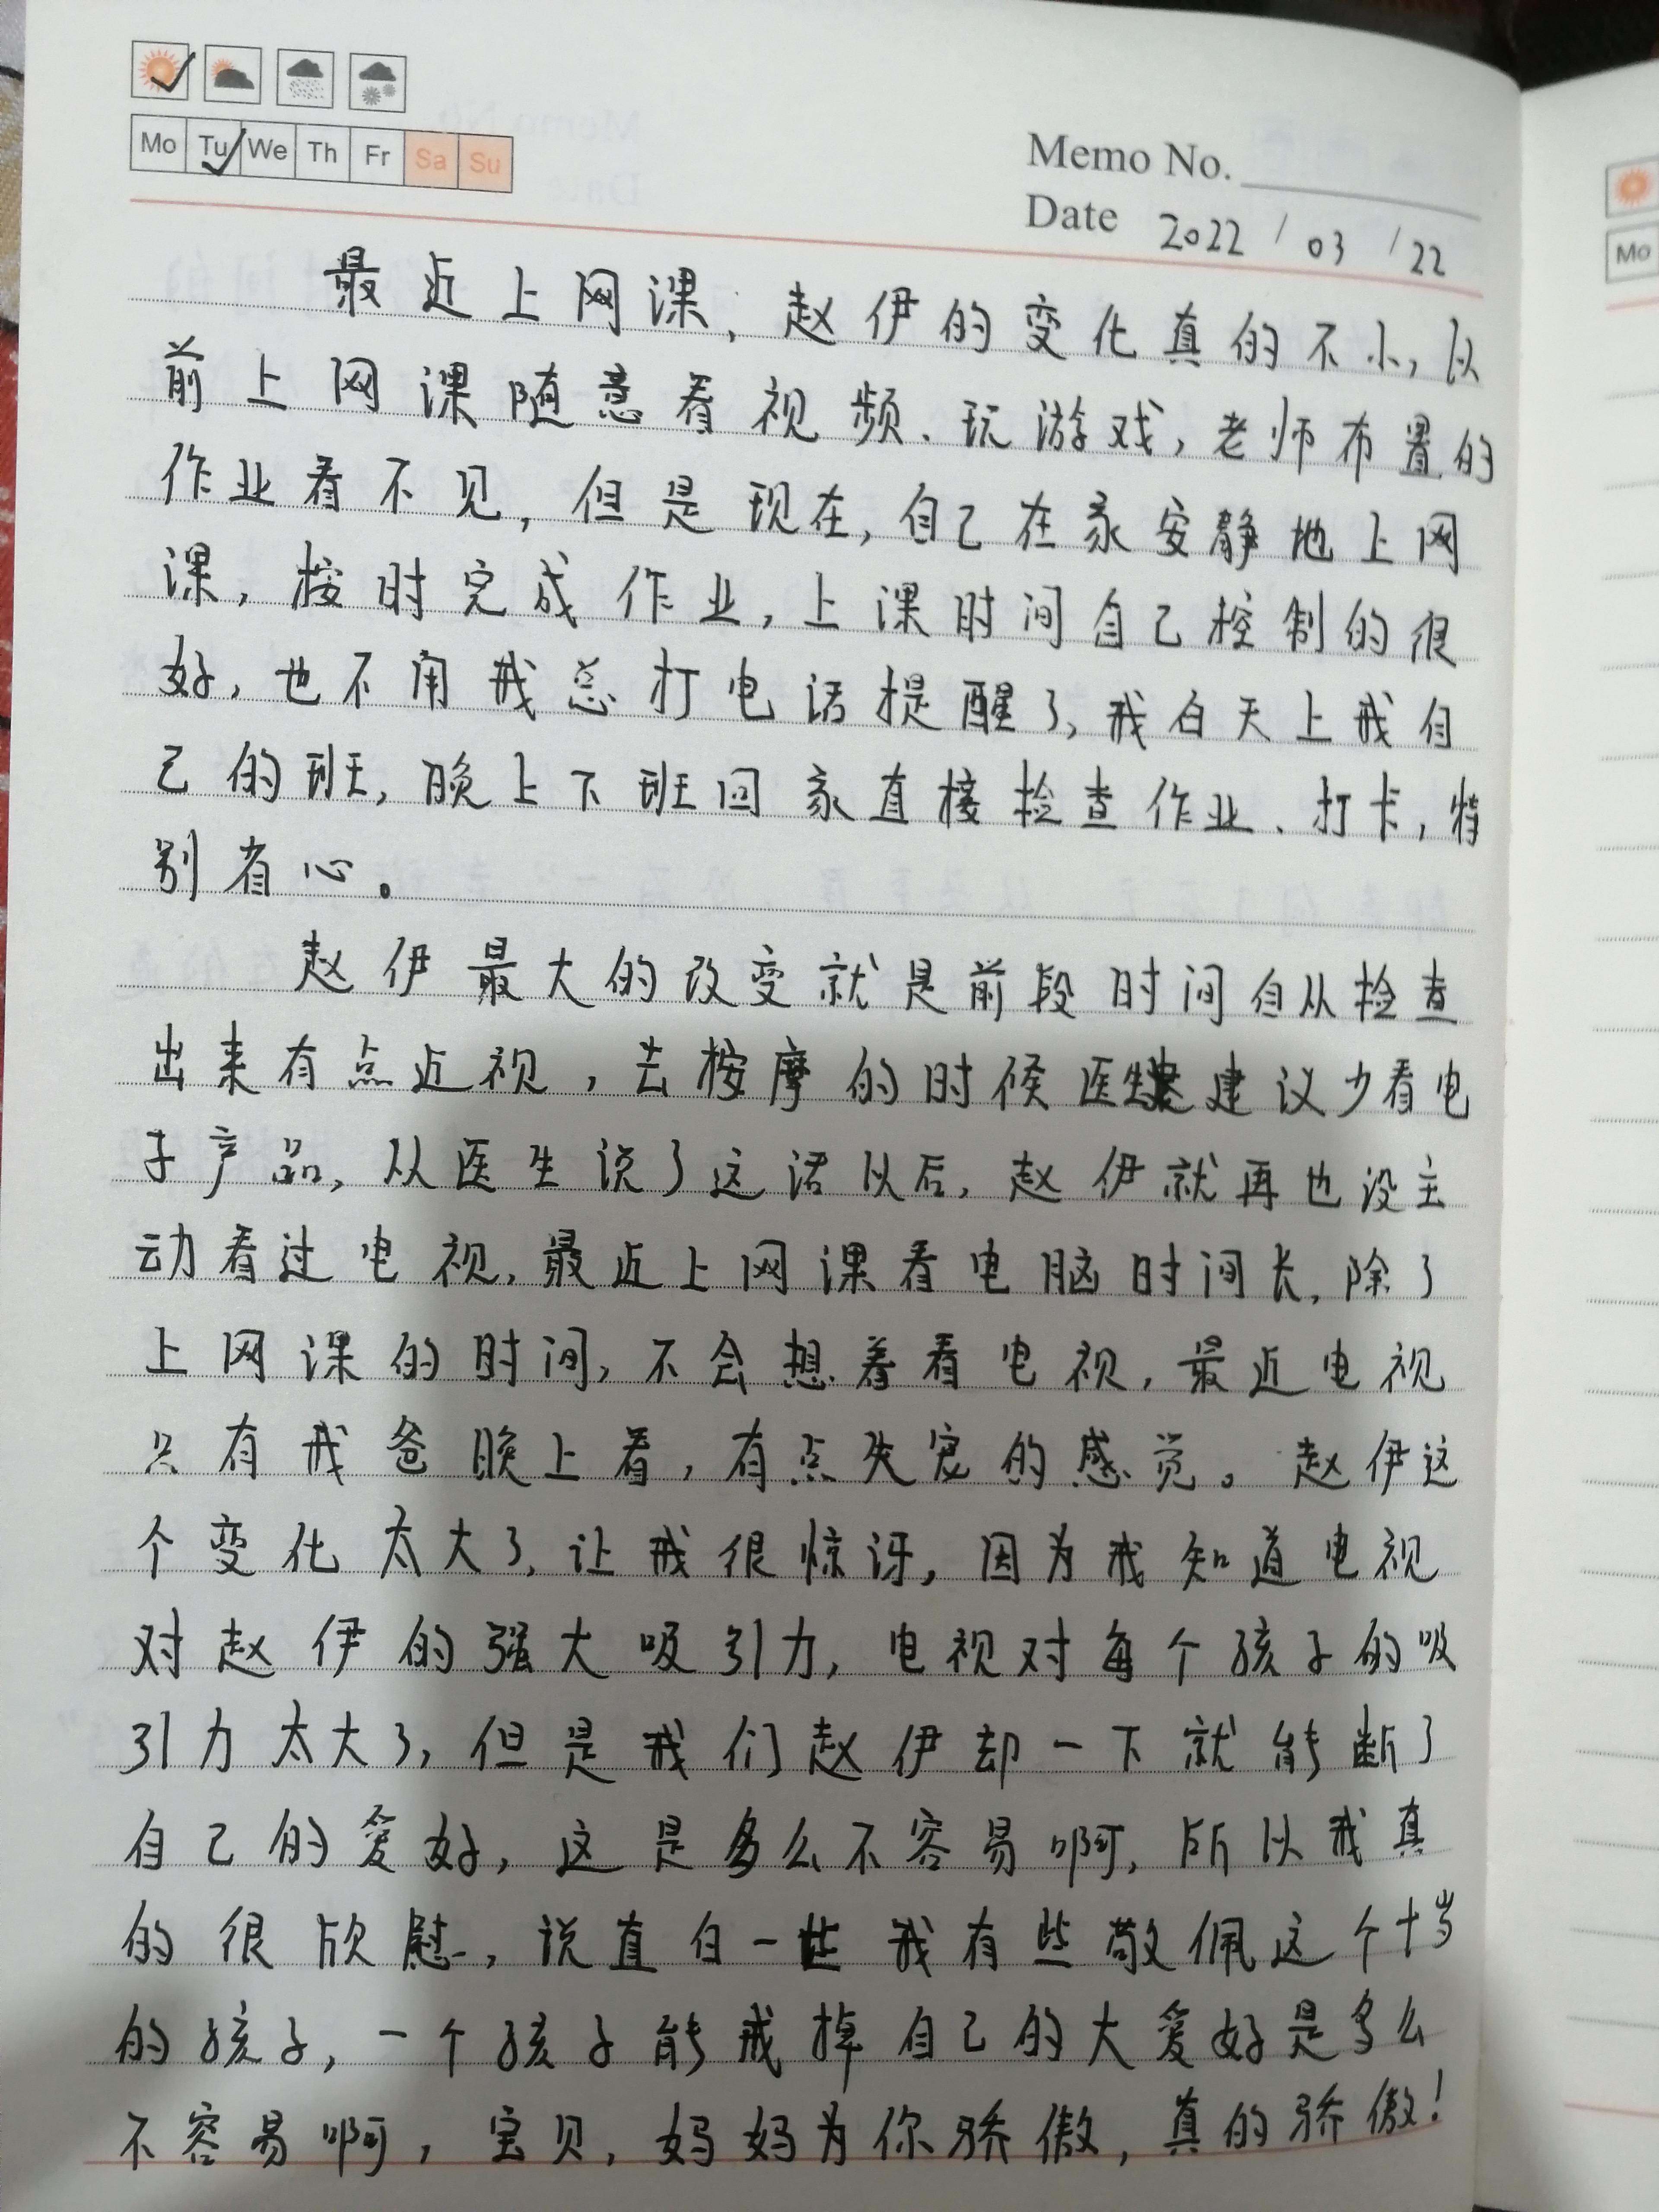 Mo Tu We Th Fr Sa Su
Memo No.
Date 2022 / 03 / 22
最近上网课,赵伊的变化真的不小,以
前上网课随意看视频、玩游戏,老师布置的
作业看不见,但是现在,自己在家安静地上网
课,按时完成作业,上课时间自己控制的很
好,也不用我总打电话提醒了,我白天上我自
己的班,晚上下班回家直接检查作业、打卡,特
别省心。
赵伊最大的改变就是前段时间自从检查
出来有点近视,去按摩的时候医生建议少看电
子产品,从医生说了这话以后,赵伊就再也没主
动看过电视,最近上网课看电脑时间长,除了
上网课的时间,不会想着看电视,最近电视
只有我爸晚上看,有点失宠的感觉。赵伊这
个变化太大了,让我很惊讶,因为我知道电视
对赵伊的强大吸引力,电视对每个孩子的吸
引力太大了,但是我们赵伊却一下就能断了
自己的爱好,这是多么不容易啊,所以我真
的很欣慰,说直白一些我有些敬佩这个十岁
的孩子,一个孩子能戒掉自己的大爱好是多么
不容易啊,宝贝,妈妈为你骄傲,真的骄傲!
Mo